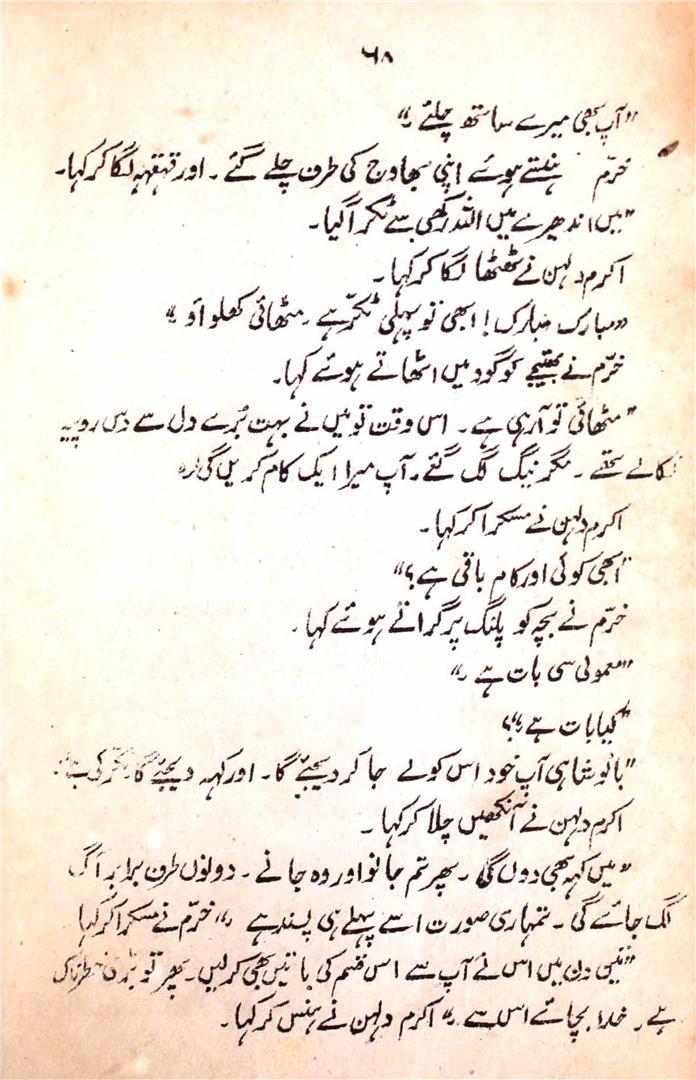 ۶۸
"آپ بھی میرے ساتھ چلئے۔"
خرّم ہنستے ہوئے اپنی بھاوج کی طرف چلے گئے۔ اور قہقہہ لگا کر کہا۔
"میں اندھیرے میں اللہ رکھی سے ٹکرا گیا۔
اکرم دلہن نے ٹھٹھا لگا کر کہا۔
"مبارک مبارک! ابھی تو پہلی ٹکّر ہے۔ مٹھائی کھلواؤ"
خرّم نے بھتیجے کو گود میں اٹھاتے ہوئے کہا۔
"مٹھائی تو آرہی ہے۔ اس وقت تو میں نے بہت بُرے دل سے دس روپیہ
نکالے تھے۔ مگر نیگ لگ گئے۔ آپ میرا ایک کام کریں گی۔"
اکرم دلہن نے مسکرا کر کہا۔
"ابھی کوئی اور کام باقی ہے؟"
خرّم نے بچہ کو پلنگ پر گراتے ہوئے کہا۔
"معمولی سی بات ہے۔"
"کیا بات ہے؟"
"بالوشاہی آپ خود اس کو لے جا کر دیجئے گا۔ اور کہہ دیجئے گا
اکرم دلہن نے آنکھیں چلا کر کہا۔
"میں کہہ بھی دوں گی۔ پھر تم جانو اور وہ جانے۔ دونوں طرف برابر آگ
لگ جائے گی۔ تمہاری صورت اسے پہلے ہی پسند ہے۔" خرّم نے مسکرا کر کہا
"تین دن میں اس نے آپ سے اس قسم کی باتیں بھی کرلیں۔ پھر تو بڑی خطرناک
ہے۔ خدا بچائے اس سے۔" اکرم دلہن نے ہنس کر کہا۔